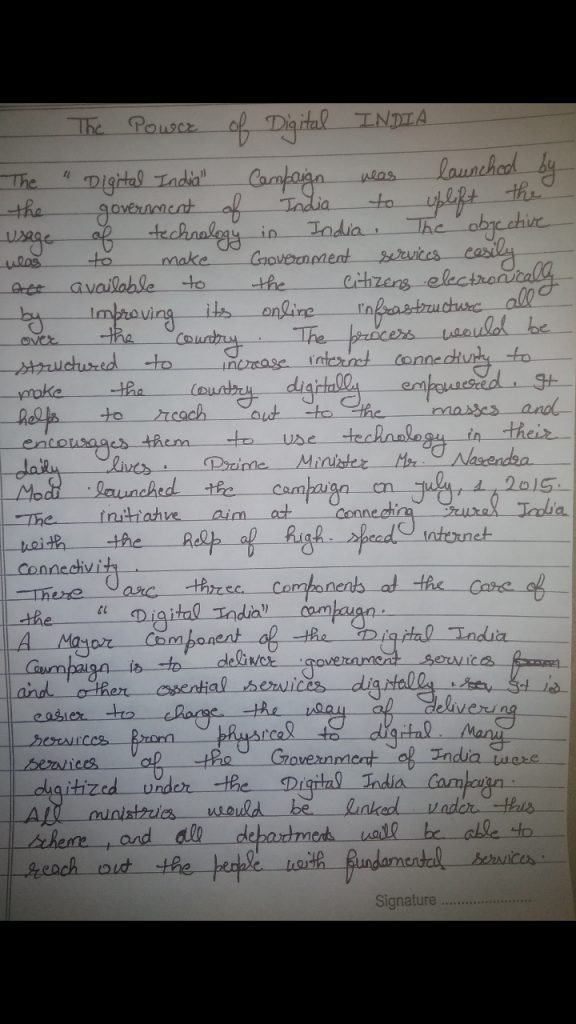 The Power of Digital INDIA
The "Digital India" Campaign was launched by
the government of India to uplift the
usage of technology in India. The objective
was to make Government services easily
available to the citizens electronically
by improving its online infrastructure all
over the country. The process would be
structured to increase internet connectivity to
make the country digitally empowered. It
helps to reach out to the masses and
encourages them to use technology in their
daily lives. Prime Minister Mr. Narendra
Modi launched the campaign on July, 1, 2015.
The initiative aim at connecting rural India
with the help of high-speed internet
connectivity.
There are three components at the core of
the "Digital India" campaign.
A Mayor component of the Digital India
Campaign is to deliver government services
and other essential services digitally. It is
easier to change the way of delivering
services from physical to digital. Many
services of the Government of India were
digitized under the Digital India Campaign.
All ministries would be linked under this
scheme, and all departments will be able to
reach out the people with fundamental services.
Signature ........................